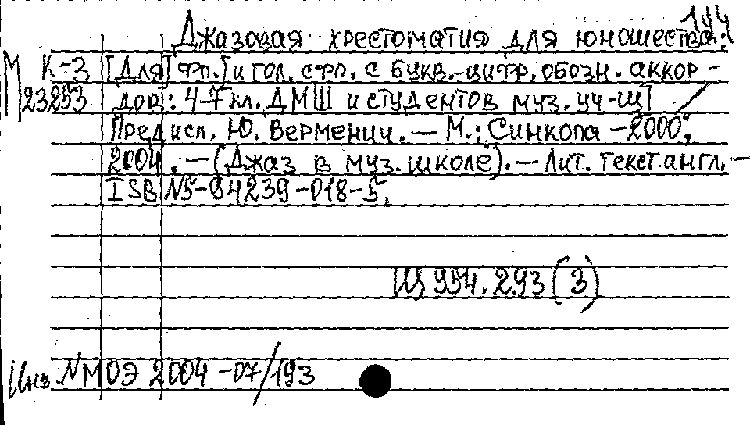 144
Джазовая хрестоматия для юношества:
М К-3 [Для] фп. [и гол. с фп. с букв.-цифр. обозн. аккор-
23253 дов: 4-7 кл. ДМШ и студентов муз. уч-щ] /
Предисл. Ю. Верменич. — М.: Синкопа -2000,
2004. — (Джаз в муз. школе). — Лит. текст англ. —
ISBN 5-94239-018-5.
Щ 994.293 (3)
Инв. NМОЭ 2004 -07/193